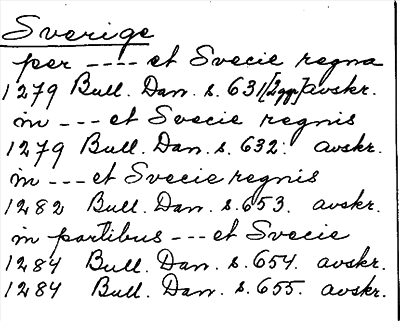 Sverige
per ---- et Svecie regna
1279 Bull. Dan. s. 631 [2ggr] avskr.
in --- et Svecie regnis
1279 Bull. Dan. s. 632. avskr.
in --- et Svecie regnis
1282 Bull. Dan. s. 653. avskr.
in partibus --- et Svecie
1284 Bull. Dan. s. 654. avskr.
1284 Bull. Dan. s. 655. avskr.